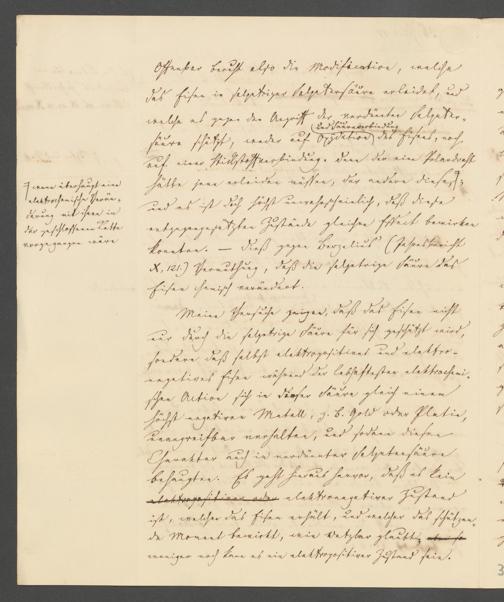 Offenbar beruht also die Modification, welche
das Eisen in salpetriger Salpetersäure erleidet, und
welche es gegen den Angriff der verdünnten Salpeter-
säure schützt, weder auf Oxydation des Eisens, noch
und Säureverbindung
auf einer Stickstoffverbindung. Denn der eine Polardraht
hätte jene erleiden müssen, der andere diese,
wenn überhaupt eine
elektrochemische Verän-
derung mit ihnen in
der geschlossenen Kette
vorgegangen wäre
und es ist doch höchst unwahrscheinlich, daß diese
entgegengesetzten Zustände gleichen Effect bewirken
konnten. — Dieß gegen Berzelius (Jahresbericht
X, 121.) Vermuthung, daß die salpetrige Säure das
Eisen chemisch verändert.
Meine Versuche zeigen, daß das Eisen nicht
nur durch die salpetrige Säure für sich geschützt wird,
sondern daß selbst elektropositives und elektro-
negatives Eisen während der lebhaftesten elektrochemi-
schen Action sich in dieser Säure gleich einem
höchst negativen Metall, z. B. Gold oder Platin,
unangreifbar verhalten, und sodann diesen
Charakter auch in verdünnter Salpetersäure
behaupten. Es geht hieraus hervor, daß es kein
elektropositiver oder elektronegativer Zustand
ist, welchen das Eisen erhält, und welcher das schützen-
de Moment bewirkt, wie Wetzlar glaubt,
weniger noch kann es ein elektropositiver Zustand sein.